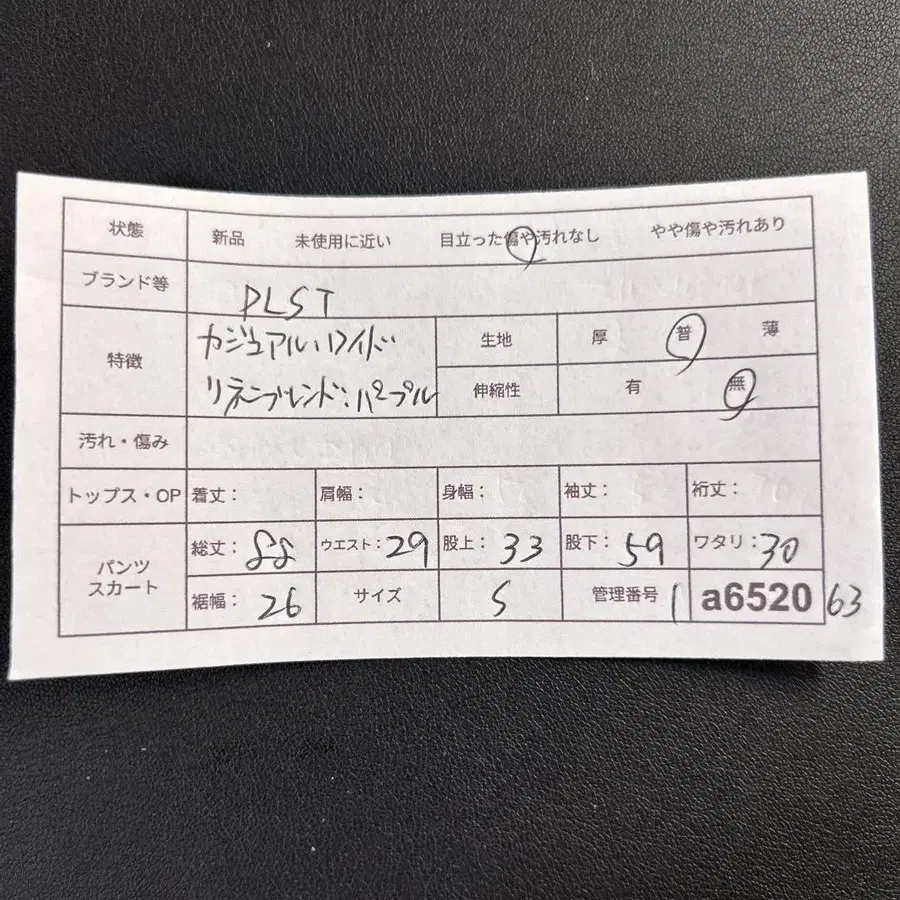 状態 新品 未使用に近い 目立った傷や汚れなし やや傷や汚れあり
ブランド等 PLST
特徴 カジュアル、ワイド 生地 厚 普 薄
リネンブレンド、パープル 伸縮性 有 無
汚れ・傷み
トップス・OP 着丈: 肩幅: 身幅: 袖丈: 裄丈:
パンツ スカート 総丈: 88 ウエスト: 29 股上: 33 股下: 59 ワタリ: 30
裾幅: 26 サイズ S 管理番号 1 a6520 63